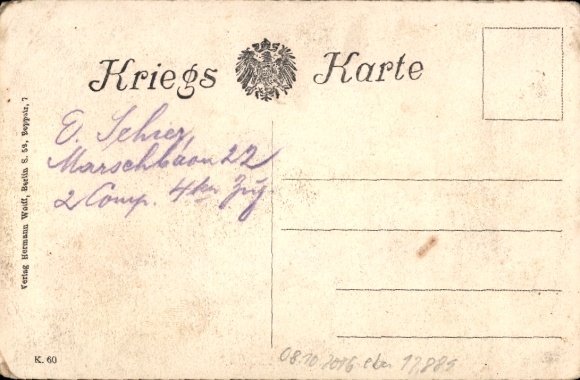 Kriegs Karte
E. Schier,
Marschbaon 22
2 Comp. 4ter Zug
Verlag Hermann Wolff, Berlin S. 59, Boppstr. 7
K. 60
08.10.2016 eba 17,885